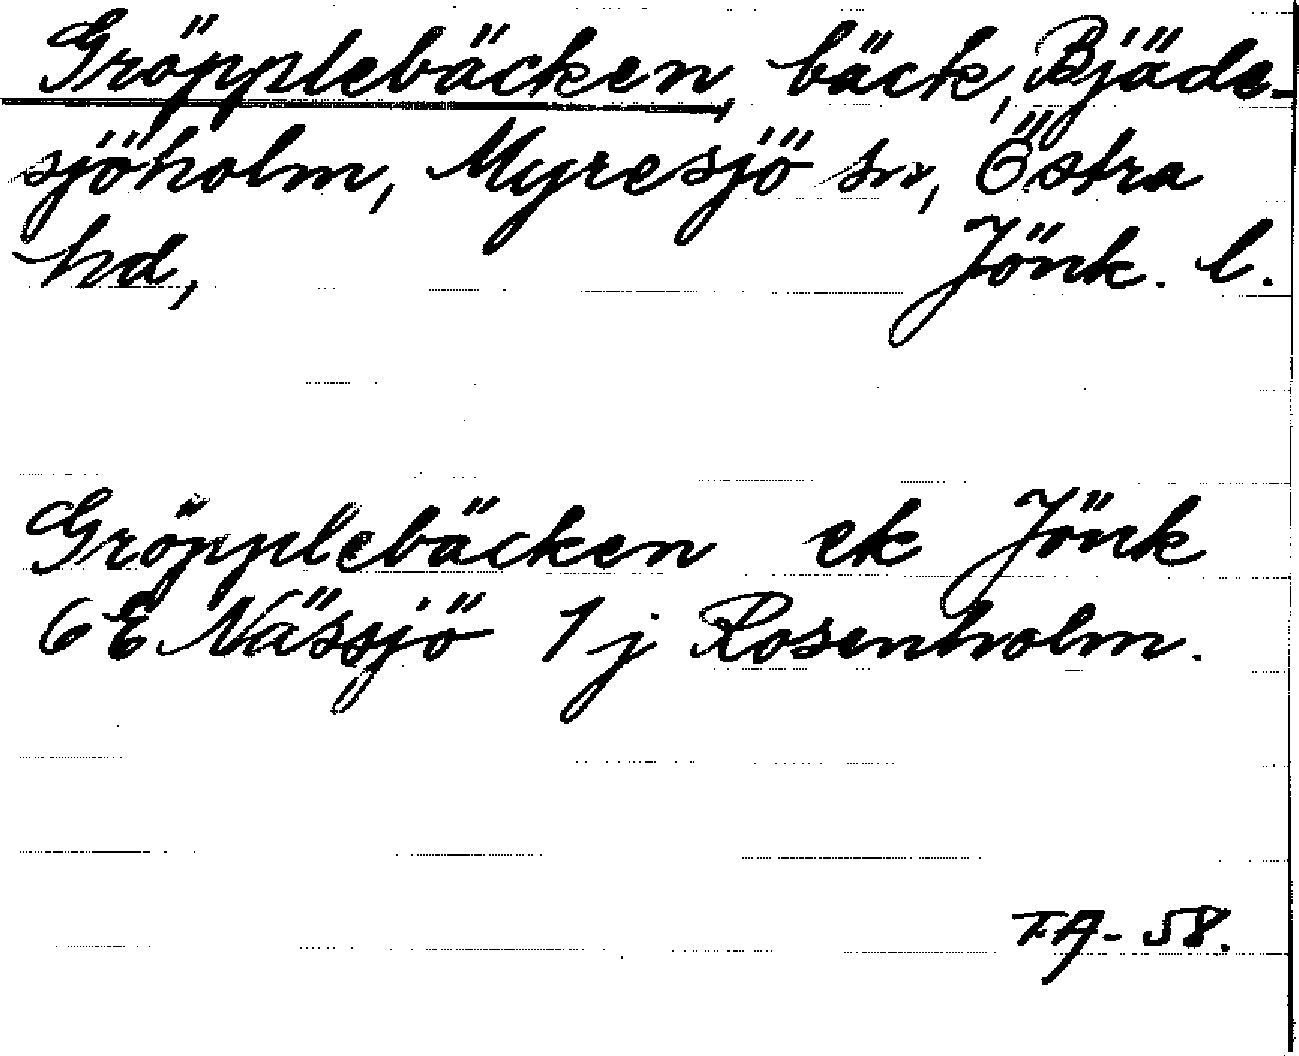 Gröpplebäcken, bäck, Bjäde-
sjöholm, Myresjö sn, Östra
hd, Jönk. l.
Gröpplebäcken ek Jönk
6E Nässjö 1j Rosenholm.
T.A-58.